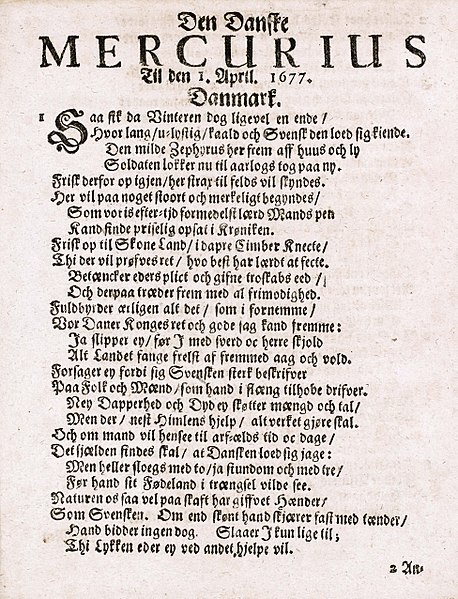 Den Danske
MERCURIUS
Til den 1. April. 1677.
Danmark.
1 Saa fik da Vinteren dog ligevel en ende/
Hvor lang/ u-lystig/ kaald och Svensk den loed sig kiende.
Den milde Zephyrus her frem aff huus och ly
Soldaten lokker nu til aarlogs tog paa ny.
Frisk derfor op igien/ her strax til felds vil skyndes.
Her vil paa noget stoort och merkeligt begyndes/
Som vor is efter-tid formedelst lærd Mands pen
Kand finde priselig opsat i Krøniken.
Frisk op til Skone Land/ i dapre Cimber Knecte/
Thi der vil prøfves ret/ hvo best har lærdt at fecte.
Betæncker eders plict och gifne troskabs eed/
Och derpaa træder frem med al frimodighed.
Fuldbyrder ærligen alt det/ som i fornemme/
Vor Daner Konges ret och gode sag kand fremme:
Ja slipper ey/ før I med sverd oc herre skjold
Alt Landet fange frelst af fremmed aag och vold.
Forsager ey fordi sig Svensken sterk beskrifver
Paa Folk och Mænd/ som hand i slæng tilhobe drifver.
Ney Dapperhed och Dyd ey skøtter mængd och tal/
Men der/ nest Himlens hjelp/ alt verket gjøre skal.
Och om mand vil hensee til arfælds tid oc dage/
Det sjælden findes skal/ at Dansken loed sig jage:
Men heller sloegs med to/ ja stundom och med tre/
Før hand sit Fødeland i trængsel vilde see.
Naturen os saa vel paa skaft har giffvet Hænder/
Som Svensken. Om end skønt hand skjærer fast med tænder/
Hand bidder ingen dog. Slaaer I kun lige til;
Thi Lykken eder ey ved andet hjelpe vil.
2 An-